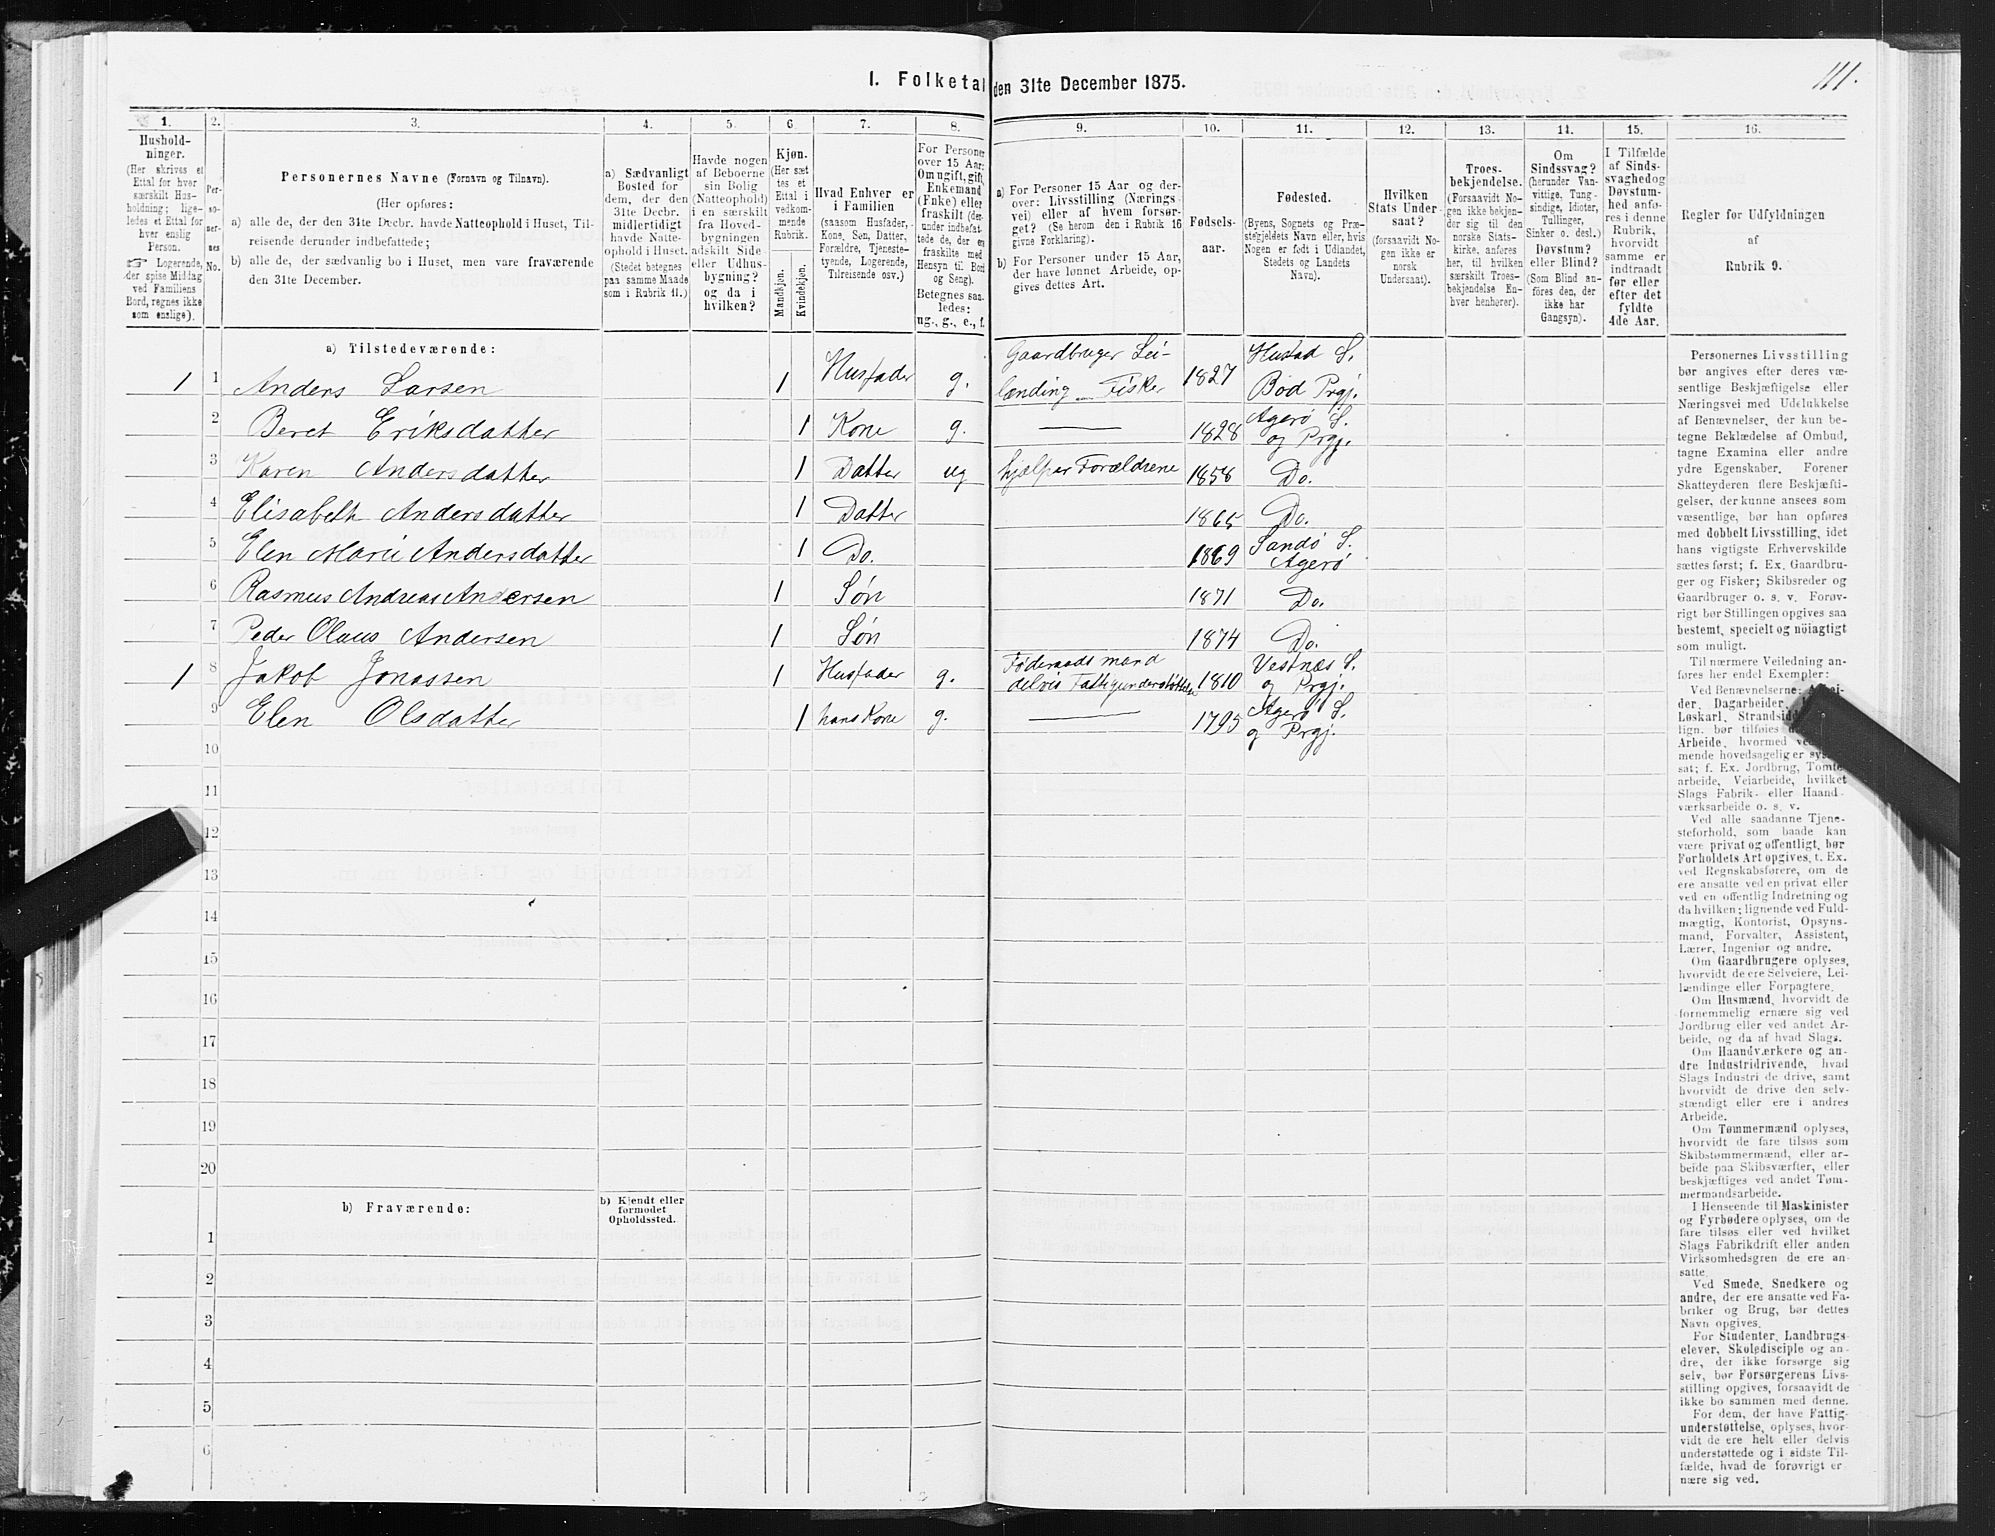 111.
I. Folketal den 31te December 1875.
1.
2.
3.
4.
5.
6.
7.
8.
9.
10.
11.
12.
13.
14.
15.
16.
Hushold-
ninger.
(Her skrives et
Ettal for hver
særskilt Hus-
holdning; lige-
ledes et Ettal for
hver enslig
Person.
☞ Logerende,
der spise Middag
ved Familiens
Bord, regnes ikke
som enslige).
Per-
so-
ner-
nes
No.
Personernes Navne (Fornavn og Tilnavn).
(Her opføres:
a) alle de, der den 31te Decbr. havde Natteophold i Huset, Til-
reisende derunder indbefattede;
b) alle de, der sædvanlig bo i Huset, men vare fraværende
den 31te December.
a) Sædvanligt
Bosted for
dem, der den
31te Decbr.
midlertidigt
havde Natte-
ophold i Huset.
(Stedet betegnes
paa samme Maade
som i Rubrik 11.)
Havde nogen
af Beboerne
sin Bolig
(Natteophold)
i en særskilt
fra Hoved-
bygningen
adskilt Side-
eller Udhus-
bygning?
og da i
hvilken?
Kjøn.
(Her sæt-
tes et
Ettal i
vedkom-
mende
Rubrik.
Mandkjøn.
Kvindekjøn.
Hvad Enhver er
i Familien
(saasom Husfader,
Kone, Søn, Datter,
Forældre, Tjeneste-
tyende, Logerende,
Tilreisende osv.)
For Personer
over 15 Aar:
Om ugift, gift,
Enkemand
(Enke) eller
fraskilt (der-
under indbefat-
tede de, der ere
fraskilte med
Hensyn til Bord
og Seng).
Betegnes saa-
ledes:
ug., g., e., f.
a) For Personer 15 Aar og der-
over: Livsstilling (Nærings-
vei) eller af hvem forsør-
get? (Se herom den i Rubrik 16
givne Forklaring).
b) For Personer under 15 Aar,
der have lønnet Arbeide, op-
gives dettes Art.
Fødsels-
aar.
Fødested.
(Byens, Sognets og Præ-
stegjeldets Navn eller, hvis
Nogen er født i Udlandet,
Stedets og Landets
Navn).
Hvilken
Stats Under-
saat?
(forsaavidt No-
gen ikke er
norsk
Undersaat).
Troes-
bekjendelse.
(Forsaavidt No-
gen ikke bekjen-
der sig til den
norske Stats-
kirke, anføres
her, til hvilken
særskilt Troes-
bekjendelse En-
hver henhører).
Om
Sindssvag?
(herunder Van-
vittige, Tung-
sindige, Idioter,
Tullinger,
Sinker o. desl.)
Døvstum?
eller Blind?
(Som Blind an-
føres den, der
ikke har
Gangsyn).
I Tilfælde
af Sinds-
svaghed og
Døvstum-
hed anfø-
res i denne
Rubrik,
hvorvidt
samme er
indtraadt
før eller
efter det
fyldte
4de Aar.
Regler for Udfyldningen
af
Rubrik 9.
a) Tilstedeværende:
1 1 Anders Larsen 1 Husfader g. Gaardbruger Lei-
lænding Fisker 1827 Hustad S.
Bod Prgj.
2 Beret Eriksdatter 1 Kone g. — 1828 Agerø S.
og Prgj.
3 Karen Andersdatter 1 Datter ug hjælper Forældrene 1858 Do.
4 Elisabeth Andersdatter 1 Datter 1865 Do.
5 Elen Marii Andersdatter 1 Do. 1869 Sandø S.
Agerø
6 Rasmus Andreas Andersen 1 Søn 1871 Do.
7 Peder Olaus Andersen 1 Søn 1874 Do.
1 8 Jakob Jonassen 1 Husfader g. Føderaadsmand
delvis Fattigunderstøttelse 1810 Vestnæs S.
og Prgj.
9 Elen Olsdatter 1 hans Kone g. — 1795 Agerø S.
og Prgj.
10
11
12
13
14
15
16
17
18
19
20
b) Fraværende:
b) Kjendt eller
formodet
Opholdssted.
1
2
3
4
5
6
Personernes Livsstilling
bør angives efter deres væ-
sentlige Beskjæftigelse eller
Næringsvei med Udelukkelse
af Benævnelser, der kun be-
tegne Beklædelse af Ombud,
tagne Examina eller andre
ydre Egenskaber. Forener
Skatteyderen flere Beskjæfti-
gelser, der kunne ansees som
væsentlige, bør han opføres
med dobbelt Livsstilling, idet
hans vigtigste Erhvervskilde
sættes først; f. Ex. Gaardbru-
ger og Fisker; Skibsreder og
Gaardbruger o. s. v. Forøv-
rigt bør Stillingen opgives saa
bestemt, specielt og nøiagtigt
som muligt.
Til nærmere Veiledning an-
føres her endel Exempler:
Ved Benævnelserne:
der, Dagarbeider,
Løskarl, Strandsid
lign. bør tilføies
Arbeide, hvormed
mende hovedsagelig er
sat; f. Ex. Jordbrug, Tomte-
arbeide, Veiarbeide, hvilket
Slags Fabrik- eller Haand-
værksarbeide o. s. v.
Ved alle saadanne Tjene-
steforhold, som baade kan
være privat og offentligt, bør
Forholdets Art opgives, t. Ex.
ved Regnskabsførere, om de
ere ansatte ved en privat eller
ved en offentlig Indretning og
da hvilken; lignende ved Fuld-
mægtig, Kontorist, Opsyns-
mand, Forvalter, Assistent,
Lærer, Ingeniør og andre.
Om Gaardbrugere oplyses,
hvorvidt de ere Selveiere, Lei-
lændinge eller Forpagtere.
Om Husmænd, hvorvidt de
fornemmelig ernære sig ved
Jordbrug eller ved andet Ar-
beide, og da af hvad Slags.
Om Haandværkere og an-
dre Industridrivende, hvad
Slags Industri de drive, samt
hvorvidt de drive den selv-
stændigt eller ere i andres
Arbeide.
Om Tømmermænd oplyses,
hvorvidt de fare tilsøs som
Skibstømmermænd, eller ar-
beide paa Skibsværfter, eller
beskjæftiges ved andet Tøm-
mermandsarbeide.
I Henseende til Maskinister
og Fyrbødere oplyses, om de
fare tilsøs eller ved hvilket
Slags Fabrikdrift eller anden
Virksomhedsgren de ere an-
satte.
Ved Smede, Snedkere og
andre, der ere ansatte ved Fa-
briker og Brug, bør dettes
Navn opgives.
For Studenter, Landbrugs-
elever, Skoledisciple og an-
dre, der ikke forsørge sig
selv, bør Forsørgerens Livs-
stilling opgives, forsaavidt de
ikke bo sammen med denne.
For dem, der have Fattig-
understøttelse, oplyses, hvor-
vidt de ere helt eller delvis
understøttede og i sidste Til-
fælde, hvad de forøvrigt er-
nære sig ved.